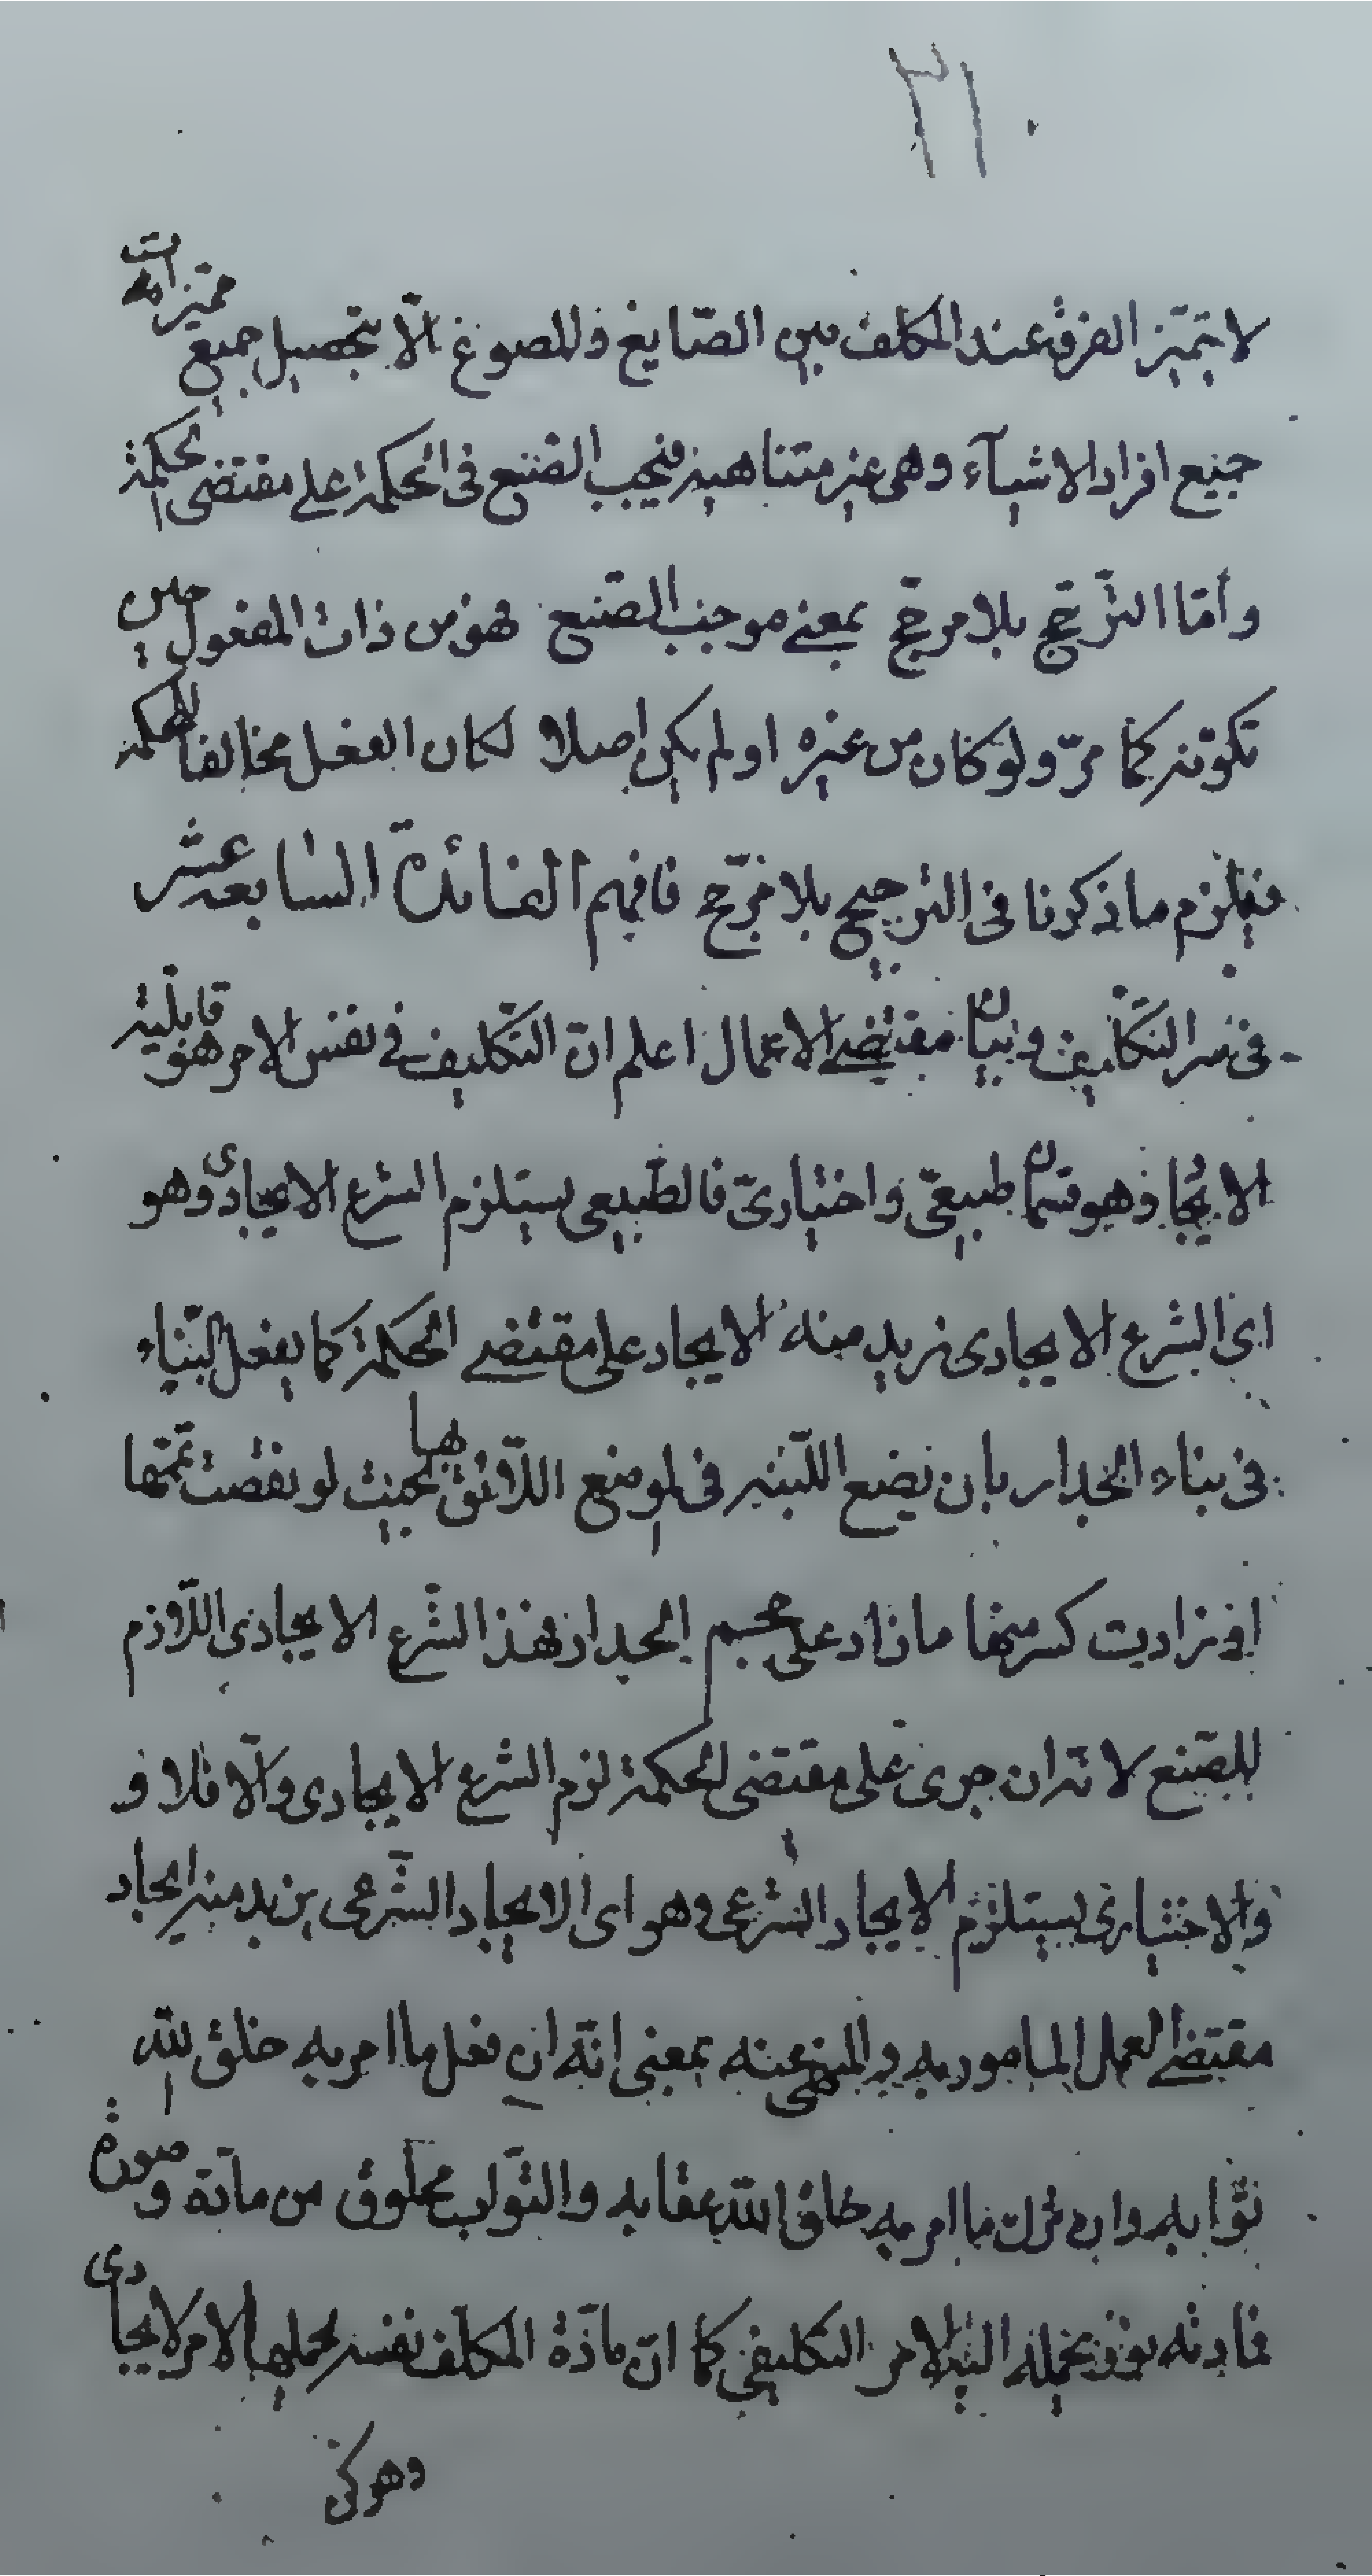 ٢١
لا يتميّز الفرق عند المكلف بين الصّايغ والمصوغ الّا بتحصيل جميع مميّزات
جميع افراد الاشيآء وهى غير متناهية فيجب الصّنع فى الحكمة على مقتضى الحكمة
وأمّا الترّجيح بلا مرجّح بمعنى موجب الصّنع فهو من ذات المفعول حين
تكوّنه كما مرّ ولو كان من غيره او لم يكن اصلا لكان الفعل مخالفا للحكمة
فيلزم ما ذكرنا فى الترجيح بلا مرجّح فافهم الفائدة السابعة عشر
فى سر التّكليف وبيان مقتضى الاعمال اعلم انّ التّكليف فى نفس الامر هو قابلية
الايجاد وهو قسمان طبيعىّ واختيارىّ فالطّبيعى يستلزم الشرع الايجادى وهو
اى الشرع الايجادى يريد منه الايجاد على مقتضى الحكمة كما يفعل البنّاء
فى بناء الجدار بان يضع اللّبنة فى لموضع اللّائق بها بحيث لو نقصت تمّمها
او زادت كسر منها ما زاد على حجم الجدار فهذا الشّرع الايجادى اللّازم
للصّنع لانّه ان جرى على مقتضى الحكمة لزم الشرع الايجادى والّا فلا و
والاختيارى يستلزم الايجاد الشرعى وهو اى الايجاد الشّرعى يريد منه ايجاد
مقتضى العمل المامور به والمنهى عنه بمعنى انّه ان فعل ما امر به خلق الله
ثوّابه وان ترك ما امر به خلق الله عقابه والثّواب مخلوق من مادّة وصورة
فمادته نور يحمله اليه الامر التكليفى كما انّ مادّة المكلّف نفسه يحملها الامر الايجادى
وهو كن